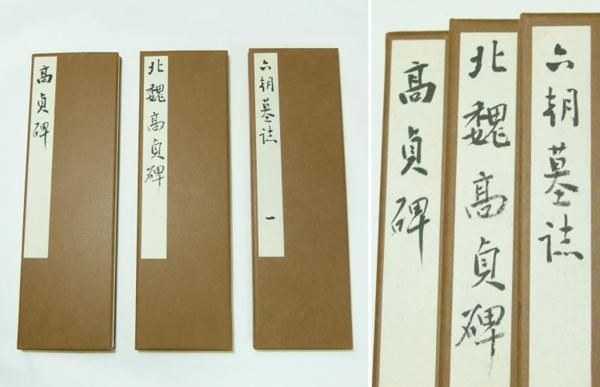 高貞碑
北魏高貞碑
六朝墓誌
一
高貞碑
北魏高貞碑
六朝墓誌